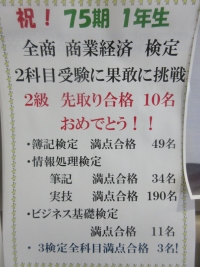 祝！ 75期 1年生
全商 商業経済 検定
2科目受験に果敢に挑戦
2級 先取り合格 10名
おめでとう！！
・簿記検定 満点合格 49名
・情報処理検定
筆記 満点合格 34名
実技 満点合格 190名
・ビジネス基礎検定
満点合格 11名
・3検定全科目満点合格 3名!